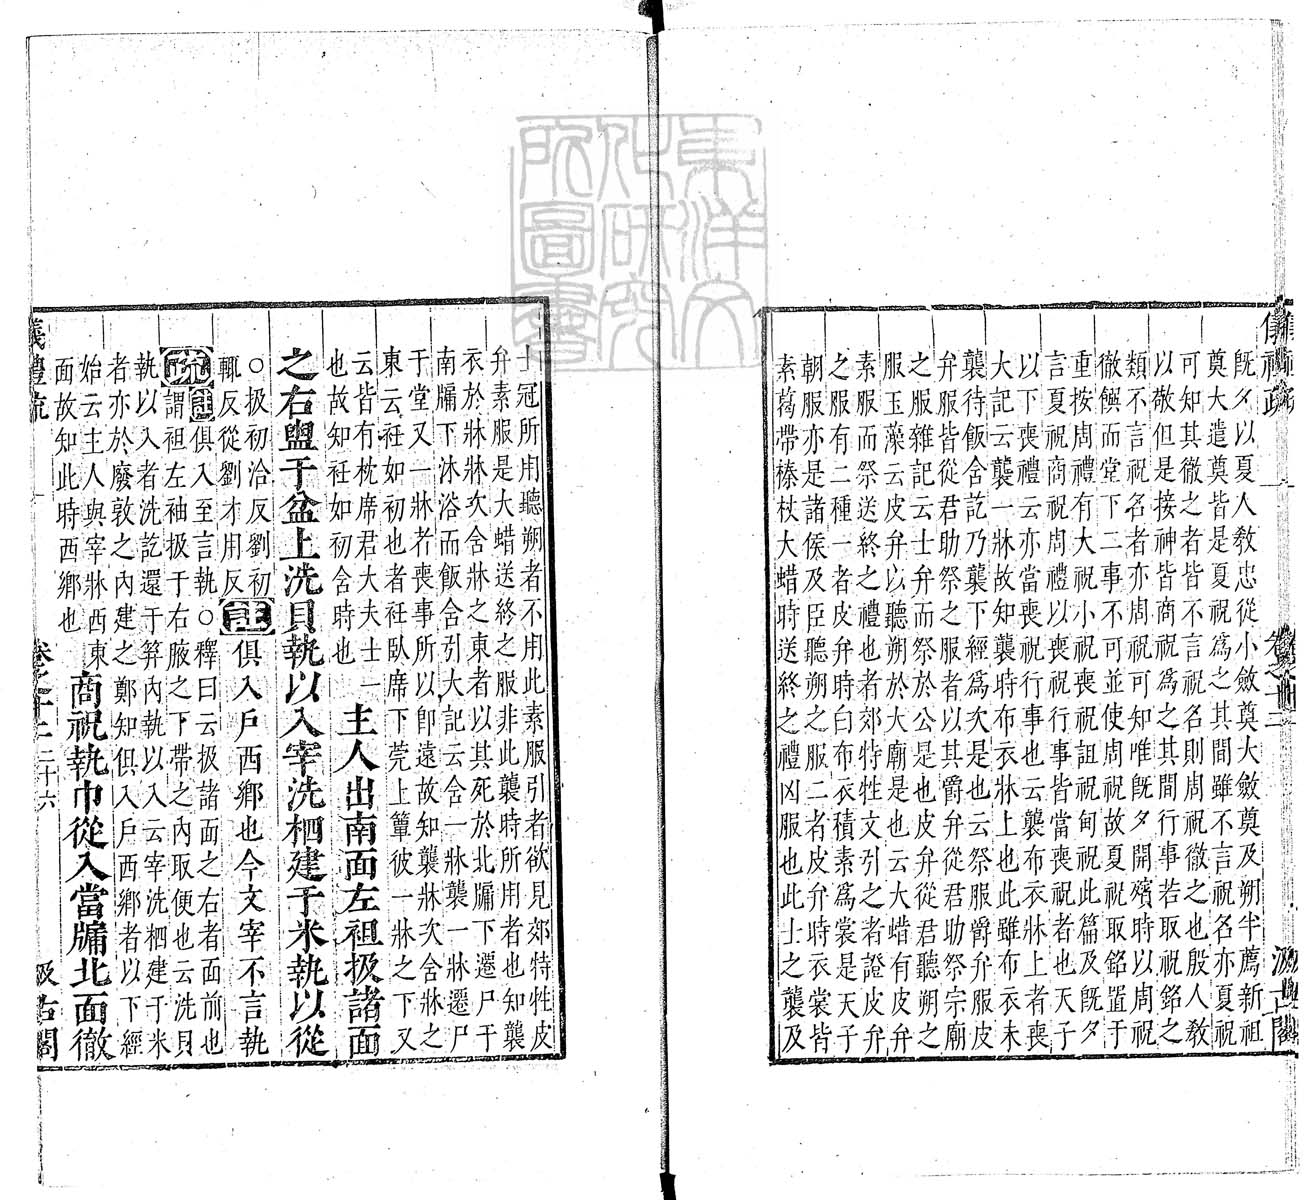 儀禮疏 卷之十二 汲古閣
既夕以夏人敎忠從小斂奠大斂奠及朔半薦新祖
奠大遣奠皆是夏祝爲之其間雖不言祝名亦夏祝
可知其徹之者皆不言祝名則周祝徹之也殷人敎
以敬但是接神皆商祝爲之其間行事若取祝銘之
類不言祝名者亦周祝可知唯既夕開殯時以周祝
徹饌而堂下二事不可並使周祝故夏祝取銘置于
重按周禮有大祝小祝喪祝詛祝甸祝此篇及既夕
言夏祝商祝周禮以喪祝行事皆當喪祝者也天子
以下喪禮云亦當喪祝行事也云襲布衣牀上者喪
大記云襲一牀故知襲時布衣牀上也此雖布衣未
襲待飯含訖乃襲下經爲次是也云祭服爵弁服皮
弁服皆從君助祭之服者以其爵弁從君助祭宗廟
之服雜記云士弁而祭於公是也皮弁從君聽朔之
服玉藻云皮弁以聽朔於大廟是也云大蜡有皮弁
素服而祭送終之禮也者郊特牲文引之者證皮弁
之服有二種一者皮弁時白布衣積素爲裳是天子
朝服亦是諸侯及臣聽朔之服二者皮弁時衣裳皆
素葛帶榛杖大蜡時送終之禮凶服也此士之襲及
東洋文化研究所圖書
士冠所用聽朔者不用此素服引者欲見郊特牲皮
弁素服是大蜡送終之服非此襲時所用者也知襲
衣於牀牀次含牀之東者以其死於北牖下遷尸于
南牖下沐浴而飯含引大記云含一牀襲一牀遷尸
于堂又一牀者喪事所以卽遠故知襲牀次含牀之
東云衽如初也者衽臥席下莞上簟彼一牀之下又
云皆有枕席君大夫士一
也故知衽如初含時也
主人出南面左袒扱諸面
之右盥于盆上洗貝執以入宰洗柶建于米執以從
○扱初洽反劉初
輒反從劉才用反
註
俱入戶西鄉也今文宰不言執
疏
註俱入至言執○釋曰云扱諸面之右者面前也
謂袒左袖扱于右腋之下帶之內取便也云洗貝
執以入者洗訖還于笲內執以入云宰洗柶建于米
者亦於廢敦之內建之鄭知俱入戶西鄉者以下經
始云主人與宰牀西東
面故知此時西鄉也
商祝執巾從入當牖北面徹
儀禮疏 卷之十二 二十六 汲古閣